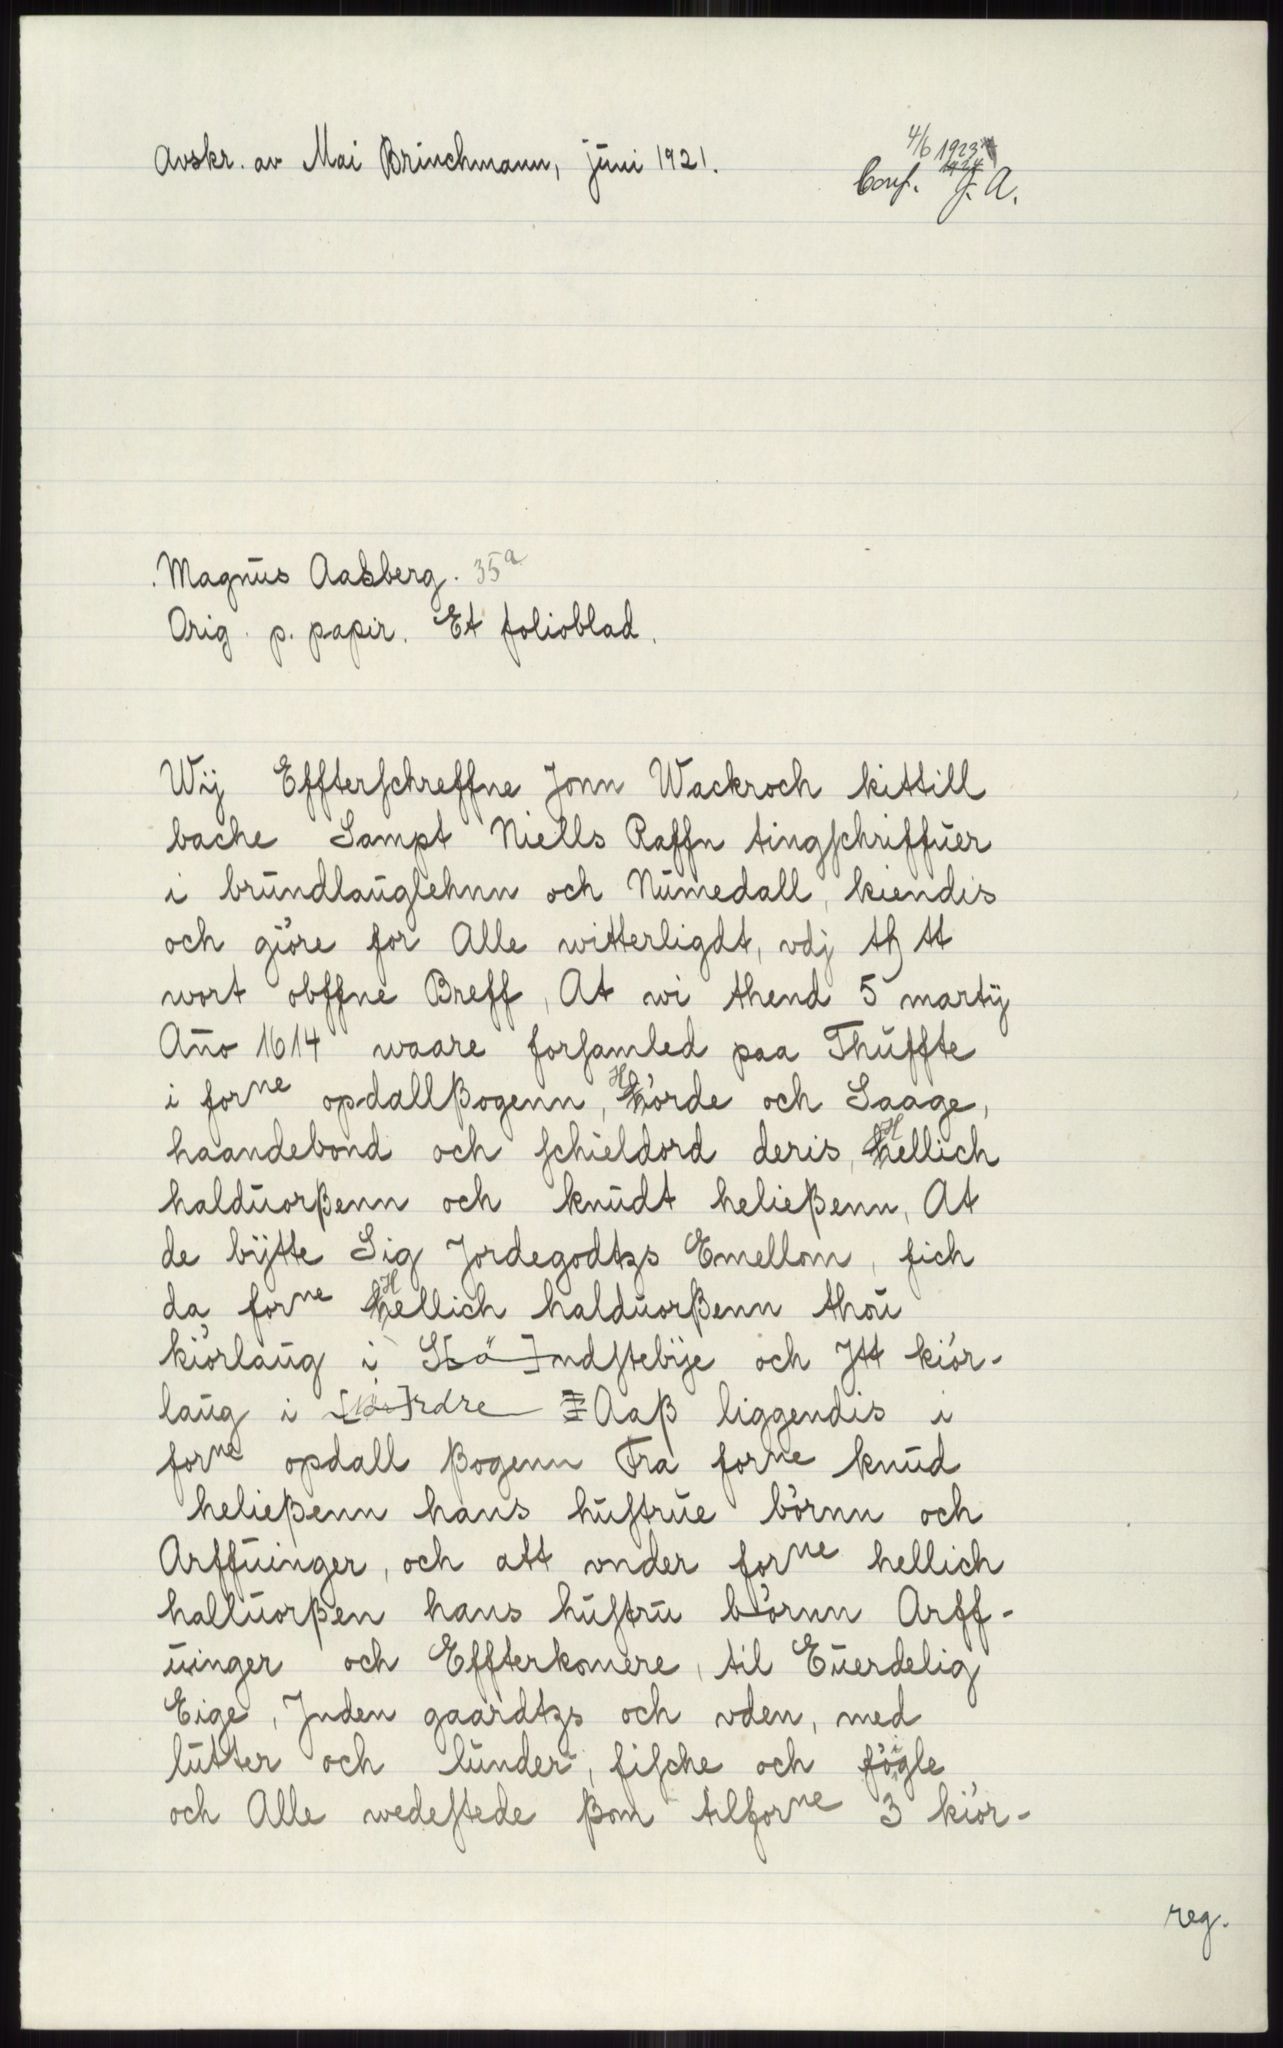 Avskr. av Mai Brinchmann, juni 1921.
4/6 1923
Conf. J. A.
Magnus Aasberg. 35a
Orig. p. papir. Et folioblad.
Wij Effterschreffne Jonn Wackroch kittill
bache Sampt Niells Raffn tingschriffuer
i brundlauglehnn och Numedall, kiendis
och giöre for Alle witterligdt, vdj
wort obffne Breff, At wi thend 5 martij
Año 1614 waare forsamled paa Thuffte
i forne opdallßogenn, Hörde och Saage,
haandebond och schieldord deris, Hellich
halduorßenn och knudt heließenn, At
de bijtte Sig Jordegodtzs Emellom, fich
da forne Hellich halduorßenn thou
kiörlaug i S[ö]ndstebije och Jtt kiör-
laug i []rdre Aaß liggendis i
forne opdall ßogenn Fra forne knud
heließenn hans hustrue börnn och
Arffuinger, och att vnder forne hellich
halluorßen hans hustru börnn Arff-
uinger och Effterkomere, til Euerdelig
Eige, Jnden gaardtzs och vden, med
lutter och lunder, fische och fögle
och Alle wedestede ßom tilforne 3 kiör-
reg.